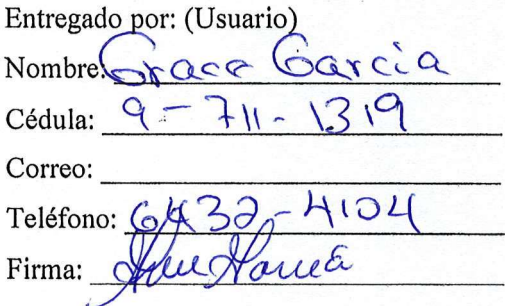 Entregado por: (Usuario)
Nombre: Grace Garcia
Cédula: 9-711-1319
Correo:
Teléfono: 6432-4104
Firma: